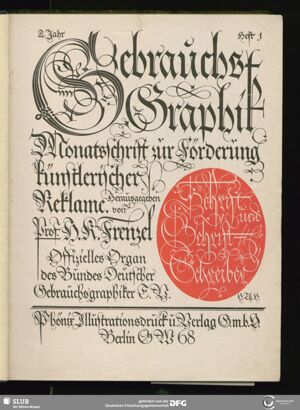 2. Jahr Heft 1
Gebrauchs
Graphik
Monatsschrift zur Förderung
künstlerischer
Reklame. Herausgegeben
von
Prof. H.K. Frenzel
Offizielles Organ
des Bundes Deutscher
Gebrauchsgraphiker E.V.
Schrift
und
Schrift=
Schreiber
Phönix Illustrationsdruck u. Verlag G.m.b.H.
Berlin SW 68
SLUB
Wir führen Wissen.
gefördert von der
DFG
Deutschen Forschungsgemeinschaft